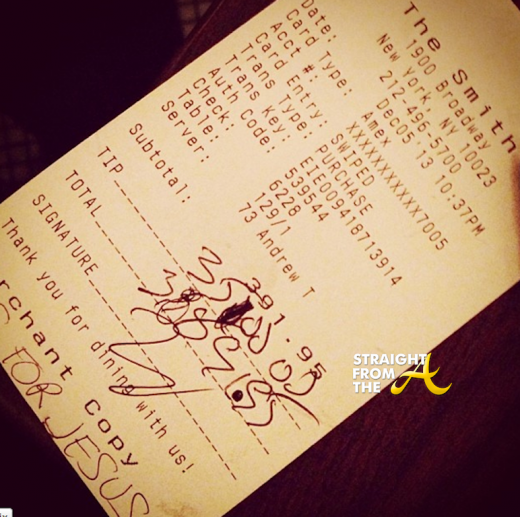 The Smith
1900 Broadway
New York, NY 10023
212-496-5700
Date: Dec05'13 10:37PM
Card Type: Amex
Acct #: XXXXXXXXXXXX7005
Card Entry: SWIPED
Trans Type: PURCHASE
Trans Key: EIE009418713914
Auth Code: 539544
Check: 6228
Table: 129/1
Server: 73 Andrew T
Subtotal: 391.95
TIP
TOTAL
SIGNATURE
Thank you for dining with us!
rchant Copy
FOR JESUS
STRAIGHT
FROM
THE A